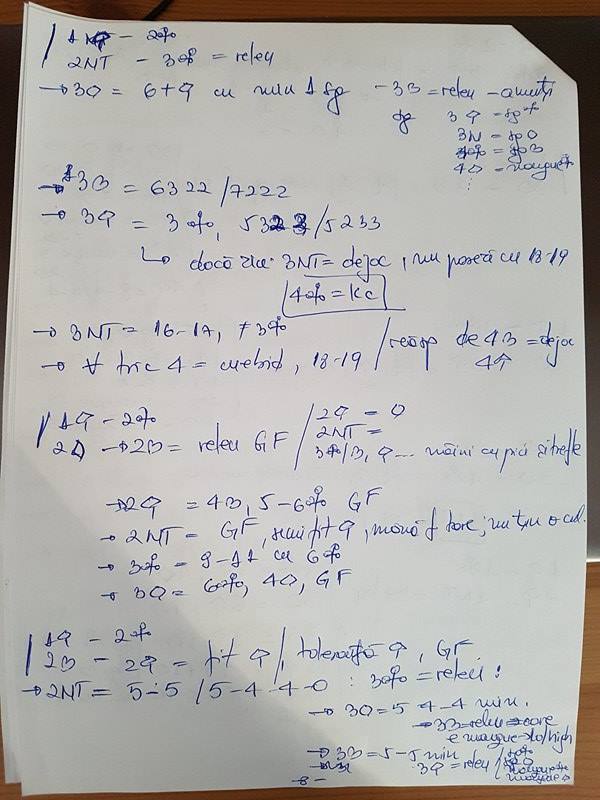 1♠ – 2♣
2NT – 3♣ = releu
→ 3♦ = 6+♠ cu min 1 sg – 3♥ = releu – anunți
sg 3♠ = sg ♣
3N = sg ♦
4♣ = sg ♥
4♦ =
→ 3♥ = 6322/7222
→ 3♠ = 3♣, 5323/5233
↳ dacă zic 3NT = de joc, nu pasează cu 18-19
4♣ = kc
→ 3NT = 16-17, ≠3♣
→ ∀ tric 4 = cuebid, 18-19 / răsp de 4♥ = de joc
4♠
1♠ – 2♣
2♦ → 2♥ = releu GF / 2♠ = ♦
2NT =
3♣/♥, ♠ ... mâini cu pici și trefle
→ 2♠ = 4♥, 5-6♣ GF
→ 2NT = GF, semifit ♠, mână f tare, nu țin o cul.
→ 3♣ = 9-11 cu 6♣
→ 3♦ = 6♣, 4♦, GF
1♠ – 2♣
2♥ – 2♠ = fit ♠ / toleranță ♠, GF
→ 2NT = 5-5 / 5-4-4-0 : 3♣ = releu :
→ 3♦ = 5 4-4 min.
→ 3♥ = releu → care
e → lo/high
→ 3♥ = 5-5 min
3♠ = releu